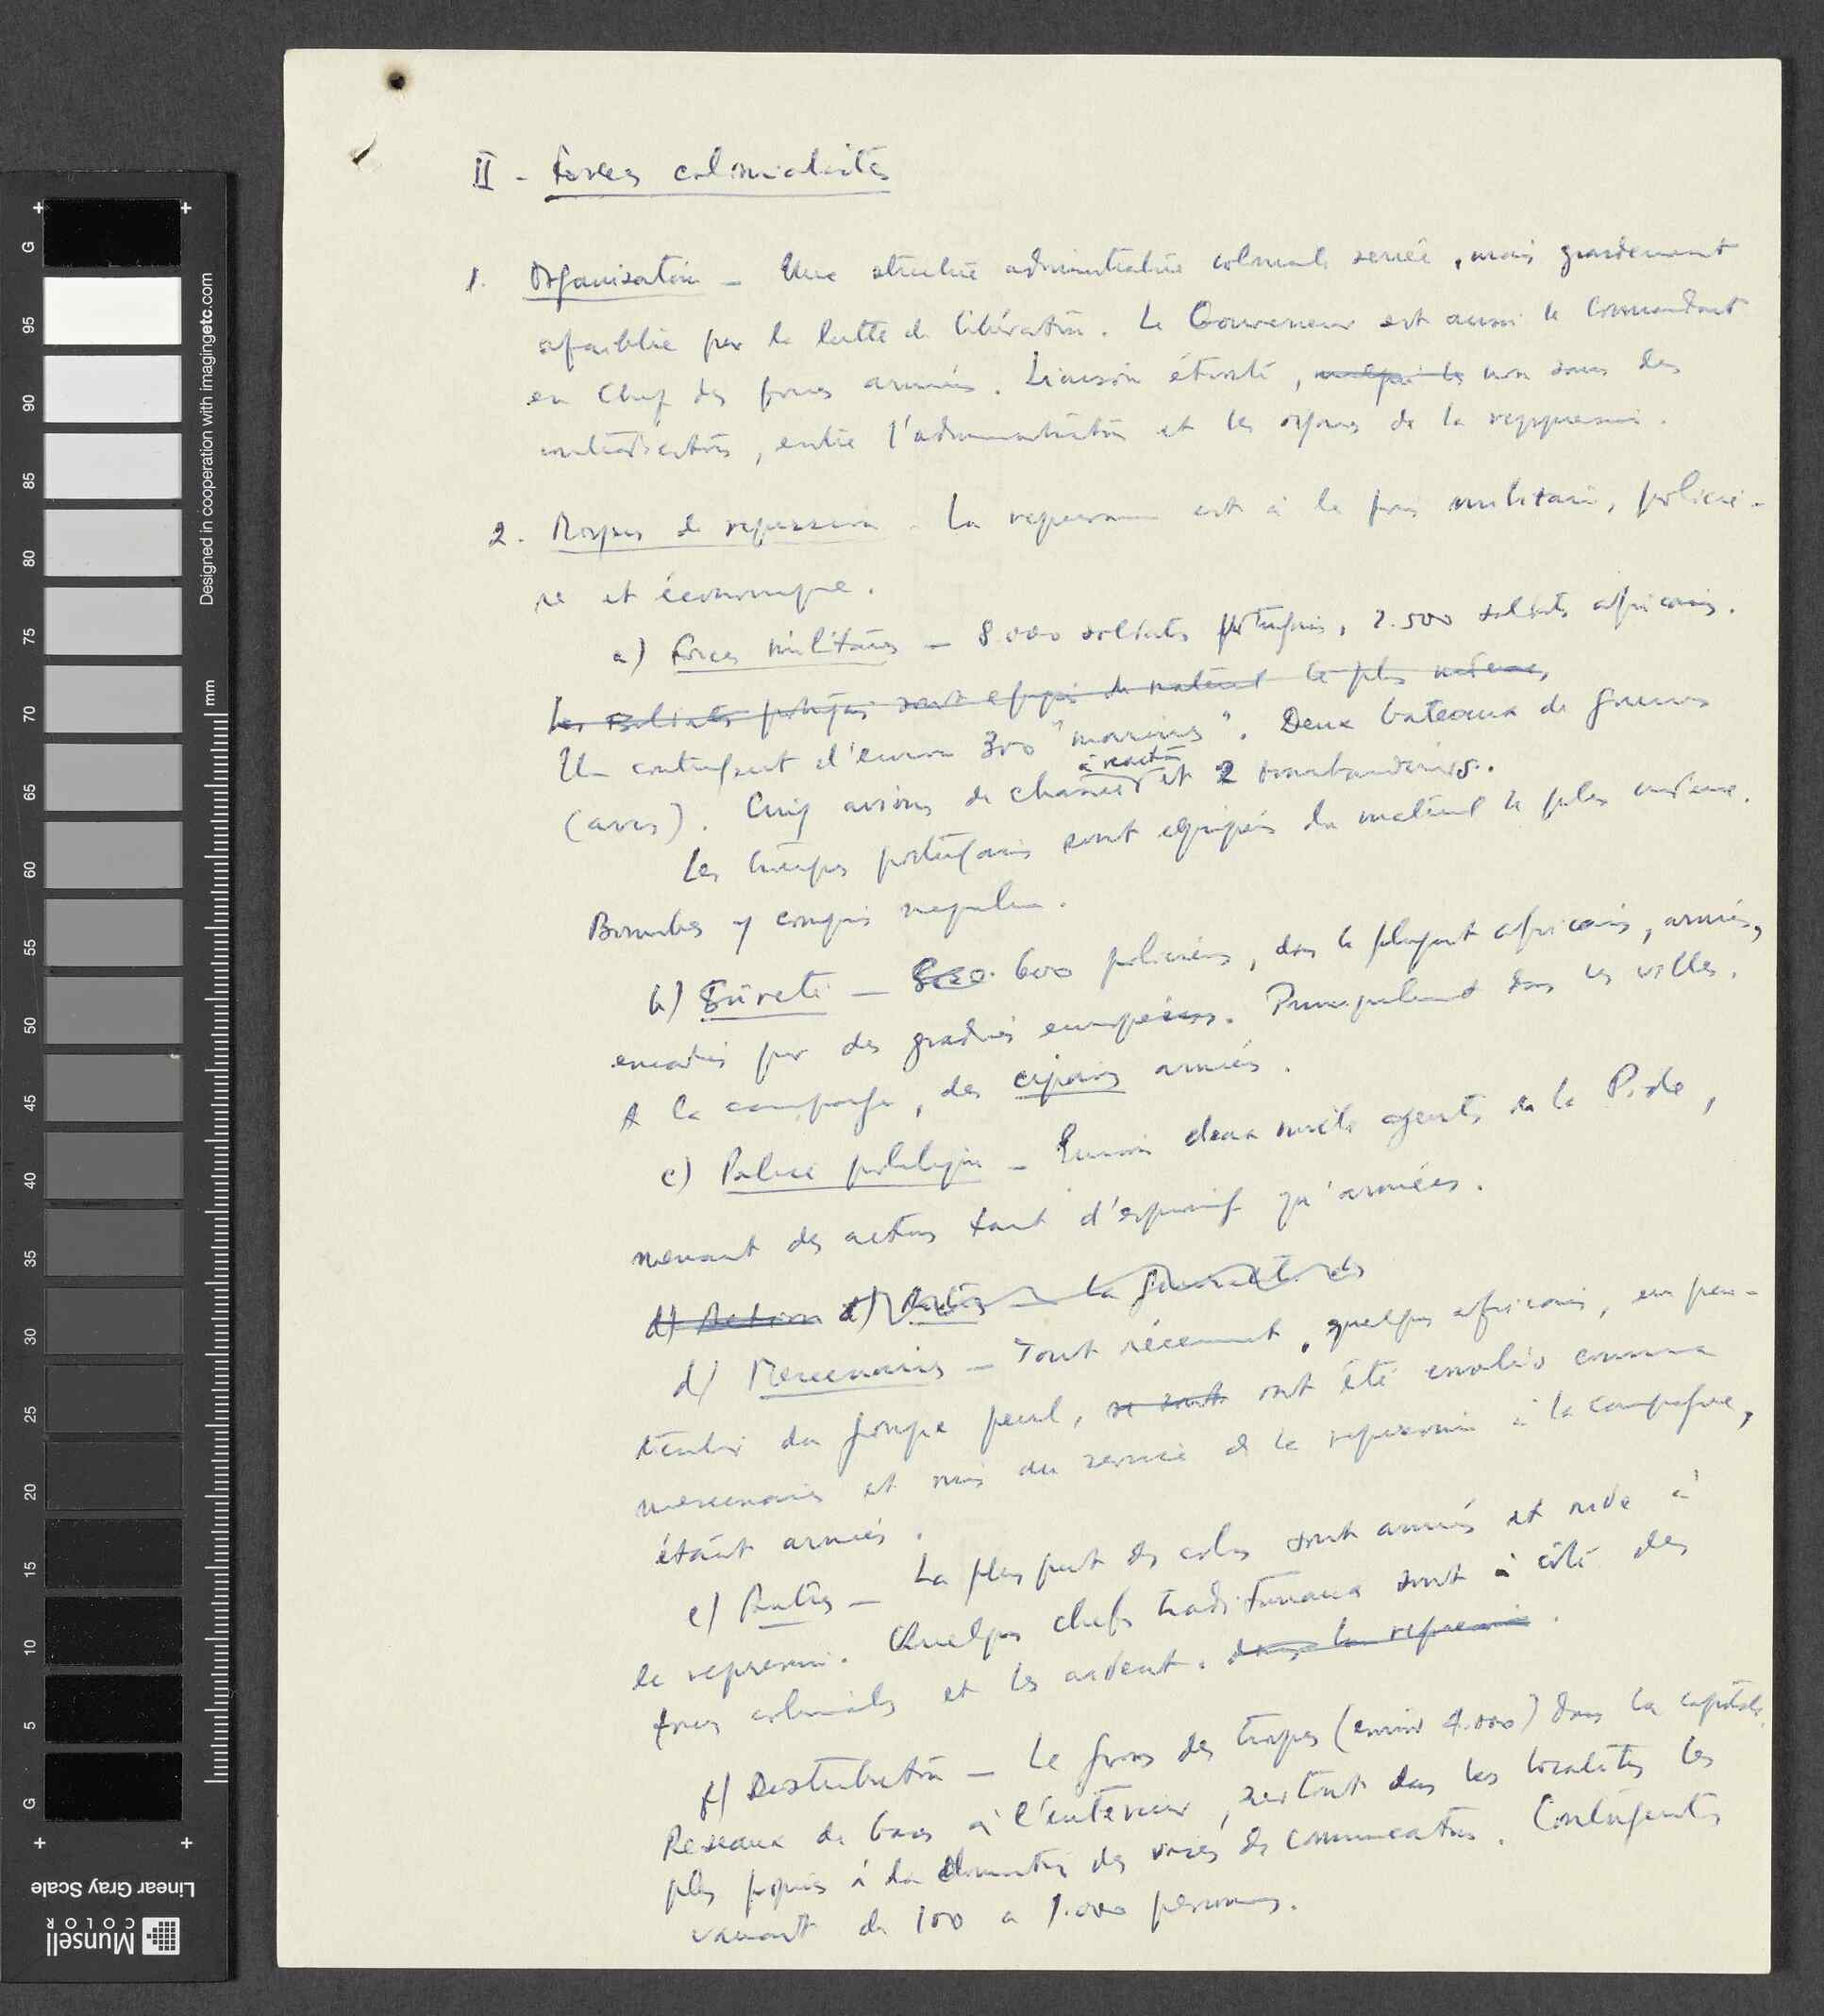 II - Forces colonialistes
1. Organisation - Une structure administrative coloniale serrée, mais grandement
afaiblie par la lutte de libération. Le Gouverneur est aussi le Commandant
en Chef des forces armées. Liaison étroite, non sans des
contradictions, entre l'administration et les organes de la reppression.
2. de repression - La repression est à la fois militaire, policiè-
re et économique.
a) Forces militaires - 8.000 soldats portugais, 2.500 soldats africains.
Les soldats portugais sont equipés du matériel le plus moderne,
Un contingent d'environ 300 "marines". Deux bateaux de guerres
(avisos). Cinq avions de chasse à reaction et 2 bombardiers.
Les troupes portugais sont equipés du matériel le plus moderne.
Bombes y compris napalm.
b) Sûreté - 600 policiers, dans la plupart africains, armés,
encadrés par des gradués européens. Principalement dans les villes.
A la campagne, des cipaios armés.
c) Police politique - Environ deux mille agents de la Pide,
menant des actions tant d'espionnage qu'armées.
d) Action d) Autres - La
d) Mercenaires - Tout récemment, quelques africains, en par-
ticulier du groupe peul, se sont ont été enrolés comme
mercenaires et mis au service de la repression à la campagne,
étant armés.
e) Autres - La plus part des colons sont armés et aide à
la repression. Quelques chefs traditionnaux sont à côté des
forces coloniales et les aident. dans la repression.
f) Distribution - Le gros des troupes (environ 4.000) dans la capitale.
Reseaux de bases à l'intérieur, surtout dans les localités les
plus propices à la domination des voies de communication. Contingents
variant de 100 a 1.000 personnes.
G
95
90
85
80
75
70
65
60
55
50
45
40
35
30
25
20
15
10
5
G
mm
Designed in cooperation with imagingetc.com
Linear Gray Scale
Munsell
COLOR